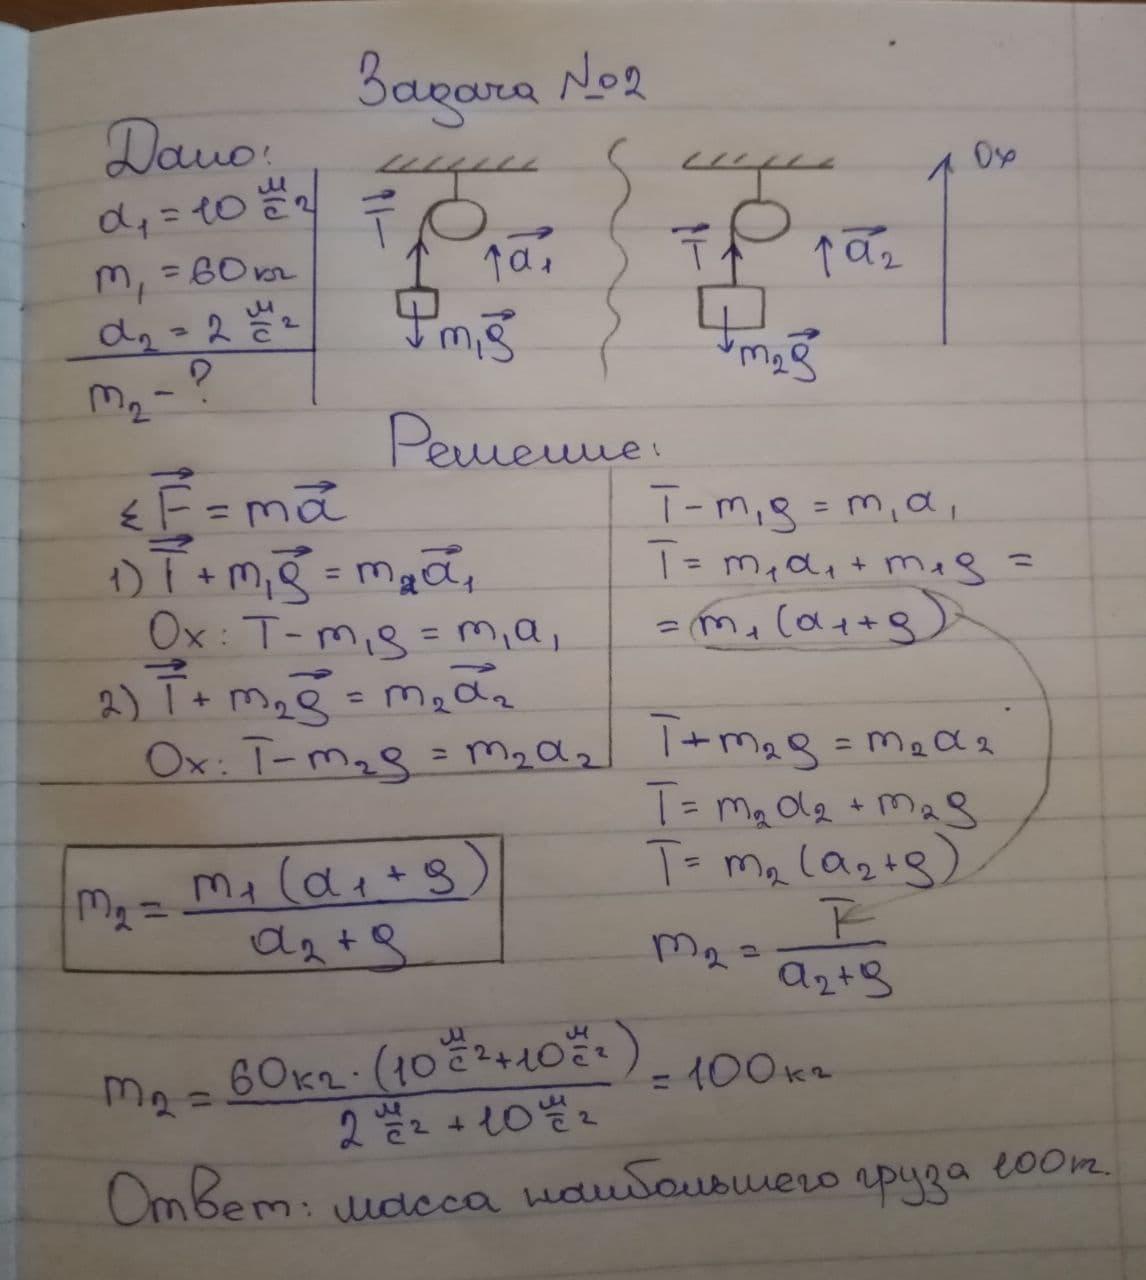 Задача №2
Дано:
a₁ = 10 м/с²
m₁ = 60 кг
a₂ = 2 м/с²
m₂ - ?
T
a₁
m₁g
T
a₂
m₂g
Ox
Решение:
ΣF = ma
1) T + m₁g = m₂a₁
Ox: T - m₁g = m₁a₁
2) T + m₂g = m₂a₂
Ox: T - m₂g = m₂a₂
T - m₁g = m₁a₁
T = m₁a₁ + m₁g =
= m₁(a₁ + g)
T + m₂g = m₂a₂
T = m₂a₂ + m₂g
T = m₂(a₂ + g)
m₂ = T / (a₂ + g)
m₂ = m₁(a₁ + g) / (a₂ + g)
m₂ = 60кг · (10 м/с² + 10 м/с²) / (2 м/с² + 10 м/с²) = 100кг
Ответ: масса наибольшего груза 100кг.